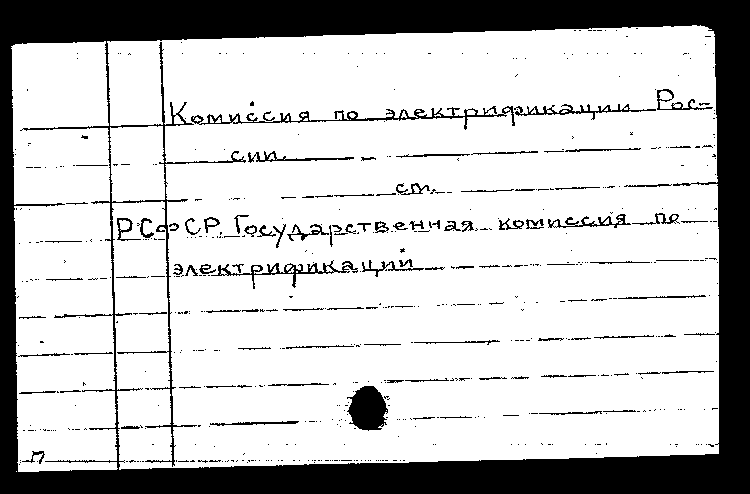 Комиссия по электрификации Рос-
сии.
см.
РСФСР. Государственная комиссия по
электрификации
П